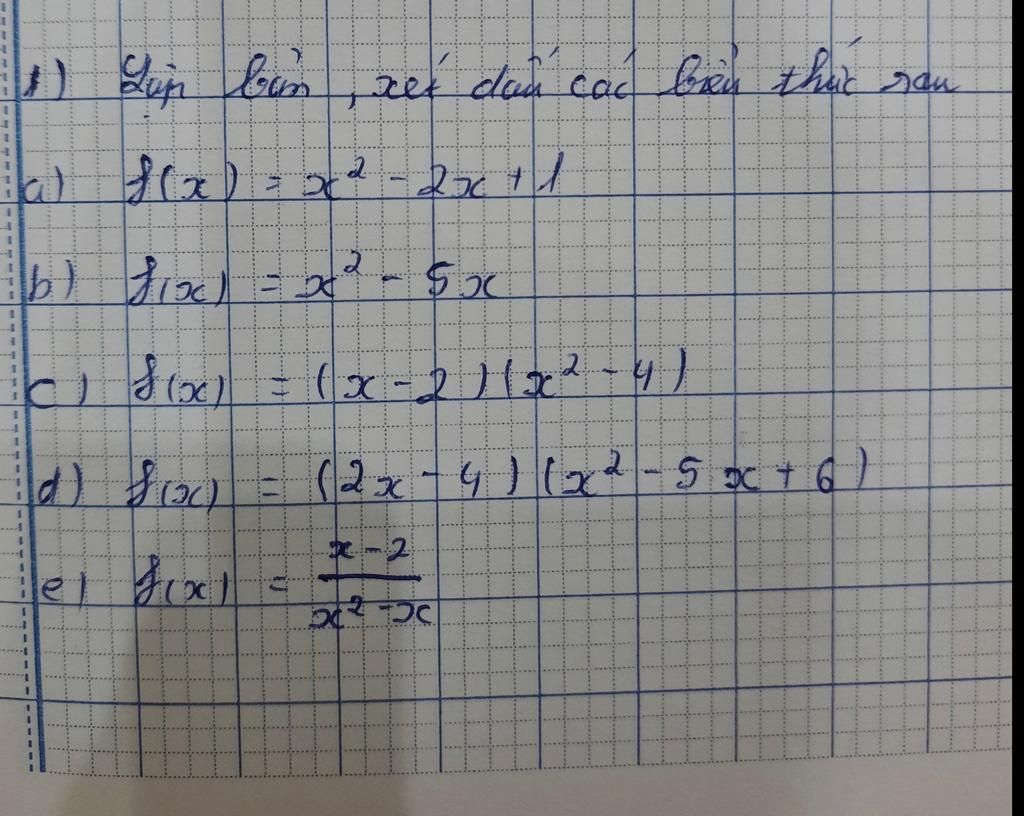 1) Lập bản, xét dấu các biểu thức sau
a) f(x) = x² - 2x + 1
b) f(x) = x² - 5x
c) f(x) = (x - 2)(x² - 4)
d) f(x) = (2x - 4)(x² - 5x + 6)
e) f(x) = \frac{x - 2}{x² - x}